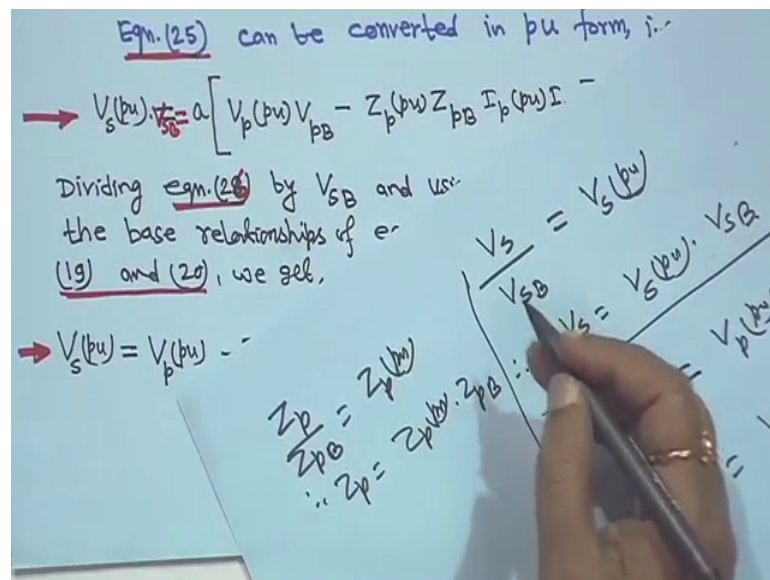 Eqn.(25) can be converted in pu form, i..
Vs(pu).VSB = a[Vp(pu)VpB - Zp(pu)ZpB Ip(pu)I -
Dividing eqn.(26) by VSB and usi
the base relationships of e
(19) and (20), we get,
Vs(pu) = Vp(pu) -
Vs/VSB = Vs(pu)
∴ Vs = Vs(pu). VSB
= Vp(pu)
=
Zp/ZpB = Zp(pu)
∴ Zp = Zp(pu). ZpB